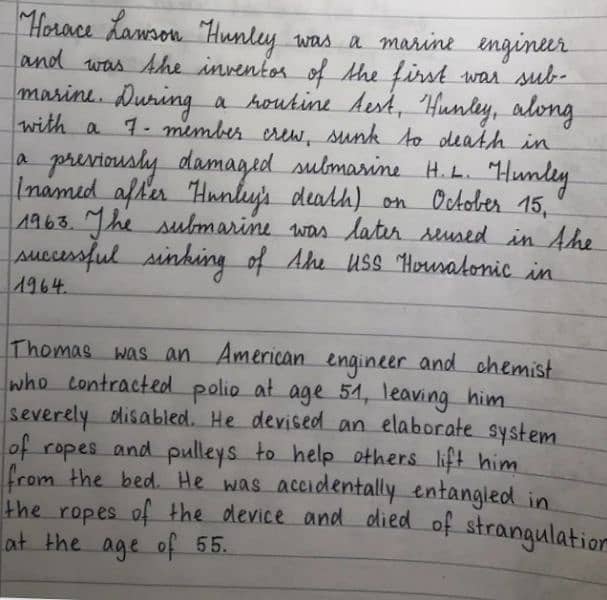 Horace Lawson Hunley was a marine engineer
and was the inventor of the first war sub-
marine. During a routine test, Hunley, along
with a 7-member crew, sunk to death in
a previously damaged submarine H.L. Hunley
(named after Hunley's death) on October 15,
1963. The submarine was later reused in the
successful sinking of the USS Housatonic in
1964.
Thomas was an American engineer and chemist
who contracted polio at age 51, leaving him
severely disabled. He devised an elaborate system
of ropes and pulleys to help others lift him
from the bed. He was accidentally entangled in
the ropes of the device and died of strangulation
at the age of 55.